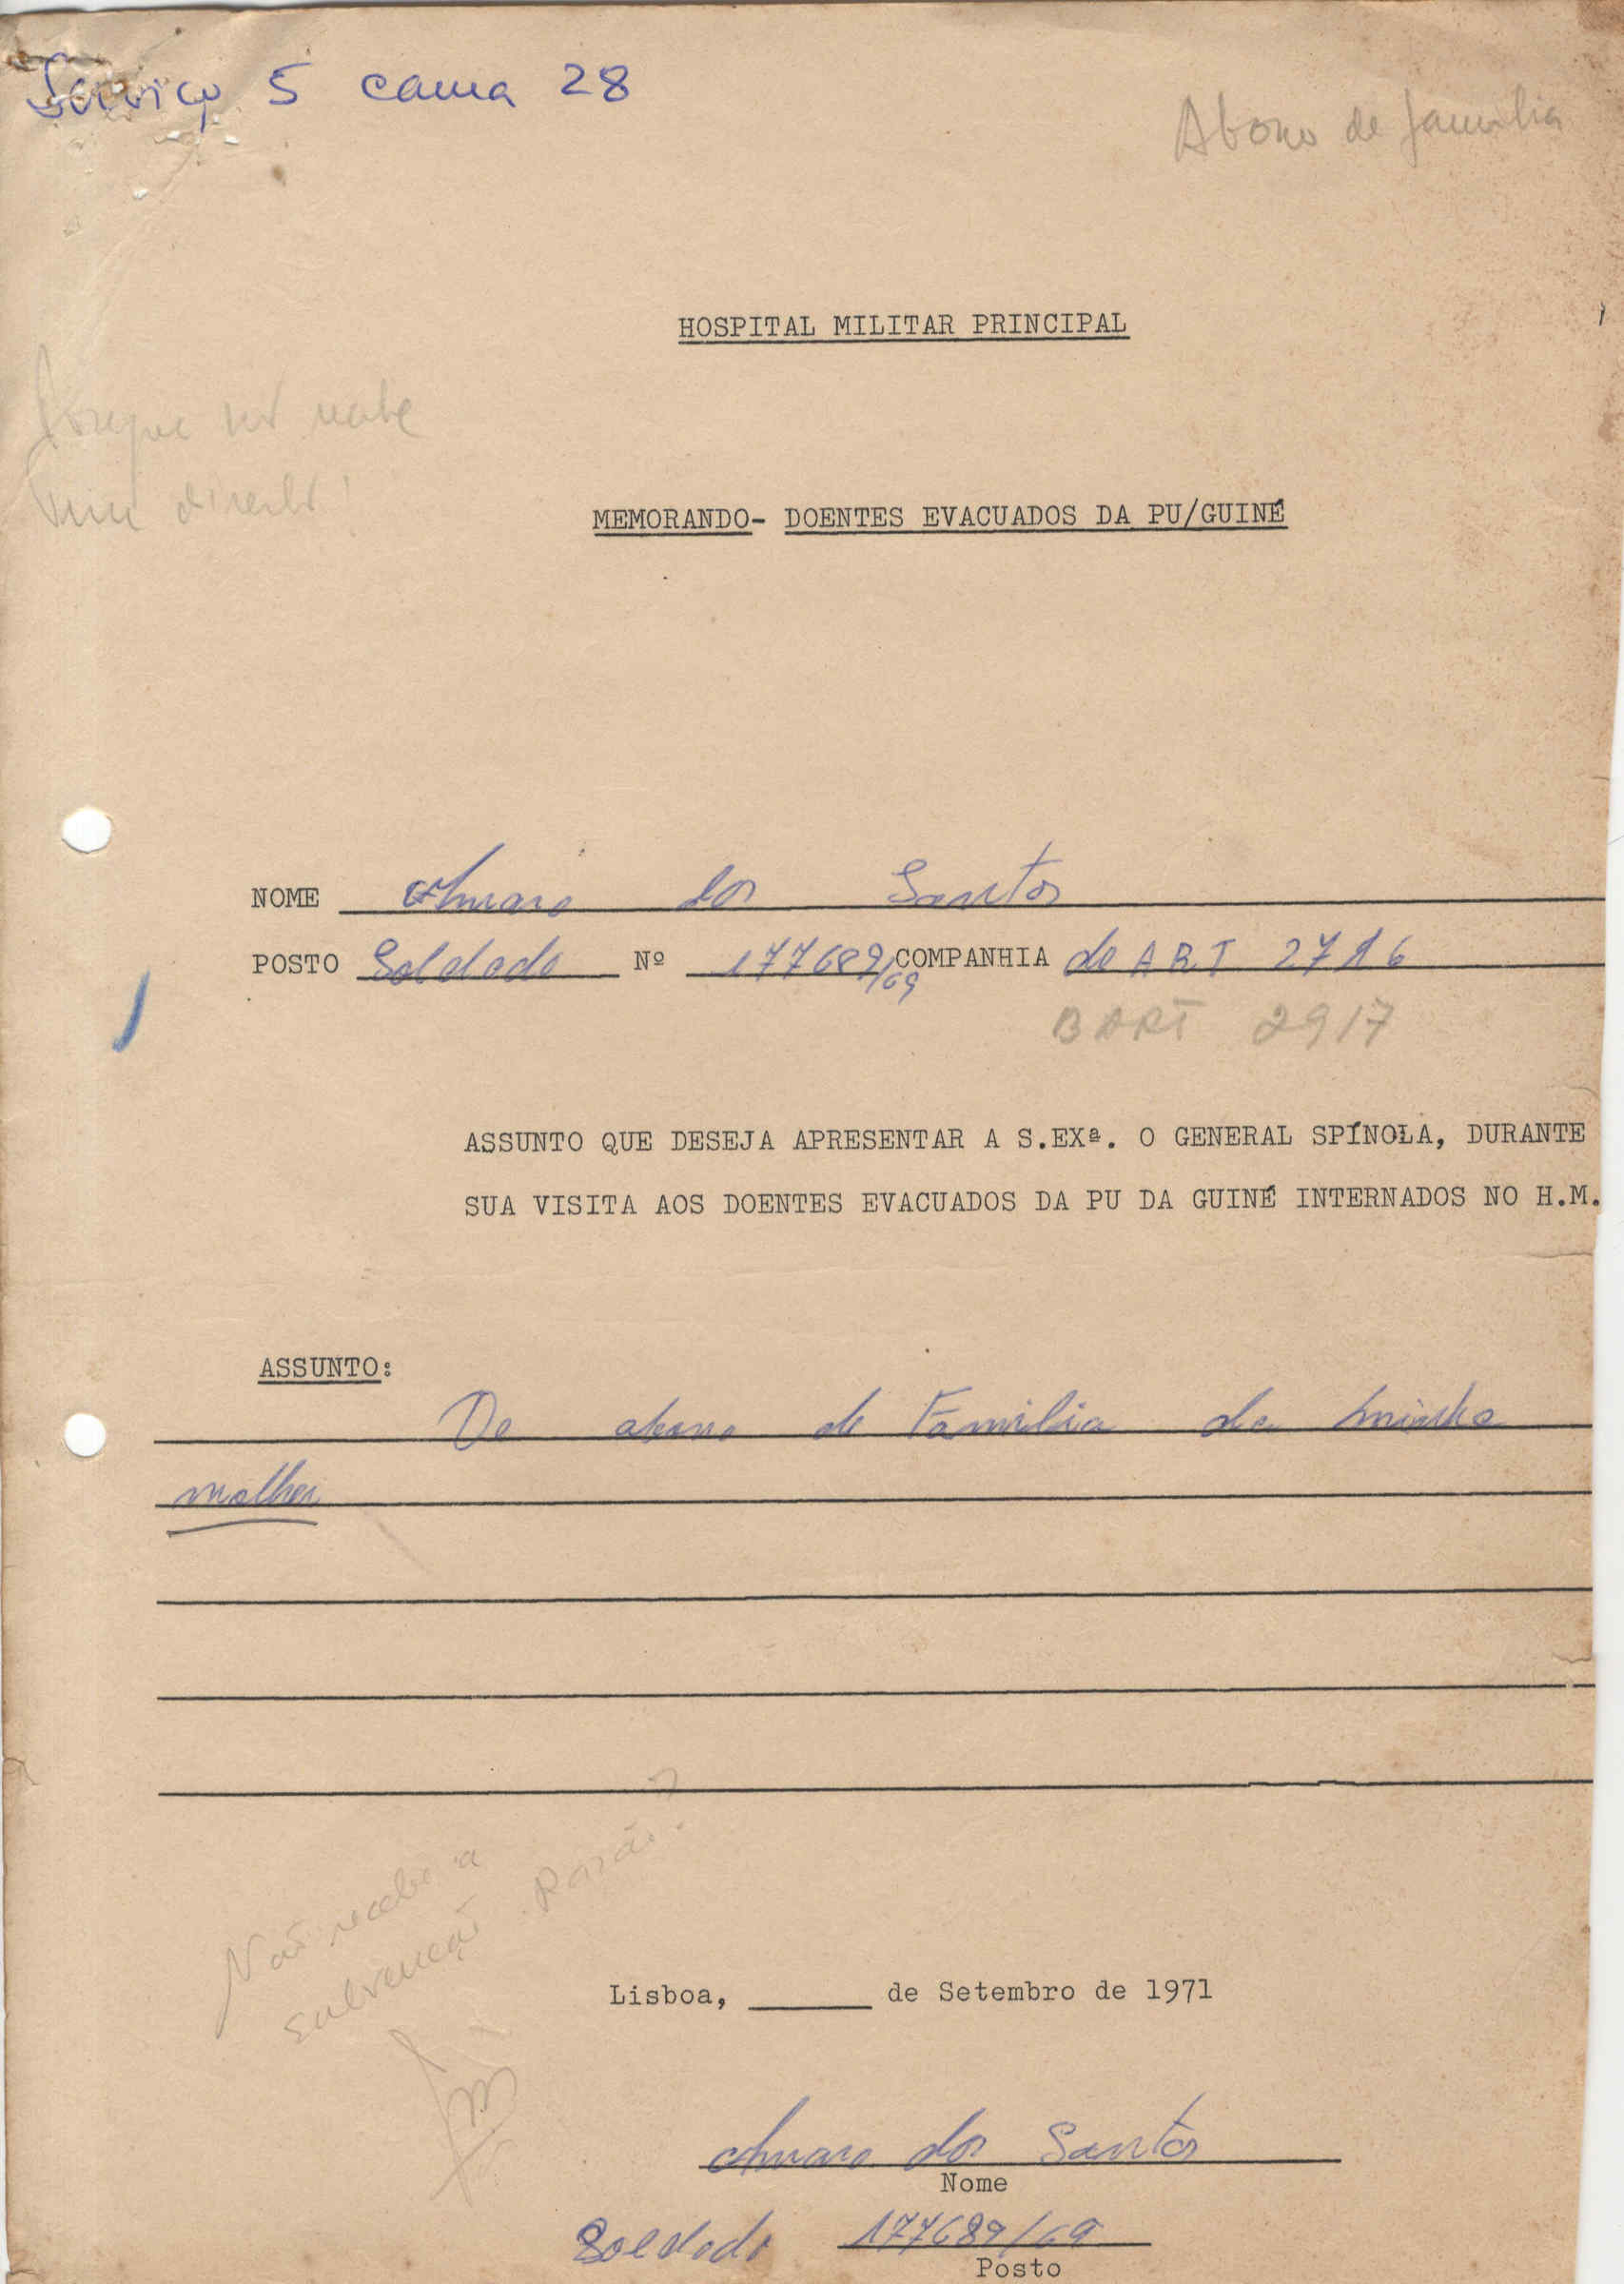 Serviço 5 cama 28
Abono de familia
HOSPITAL MILITAR PRINCIPAL
MEMORANDO- DOENTES EVACUADOS DA PU/GUINÉ
NOME Amaro dos Santos
POSTO Soldado Nº 177689/69 COMPANHIA de ART 2716
BART 2917
ASSUNTO QUE DESEJA APRESENTAR A S.EXª. O GENERAL SPÍNOLA, DURANTE
SUA VISITA AOS DOENTES EVACUADOS DA PU DA GUINÉ INTERNADOS NO H.M.
ASSUNTO:
De abono de Familia da minha
molher
Não recebe a
subvenção. Razão?
Lisboa, ______ de Setembro de 1971
Amaro dos Santos
Nome
Soldado 177689/69
Posto